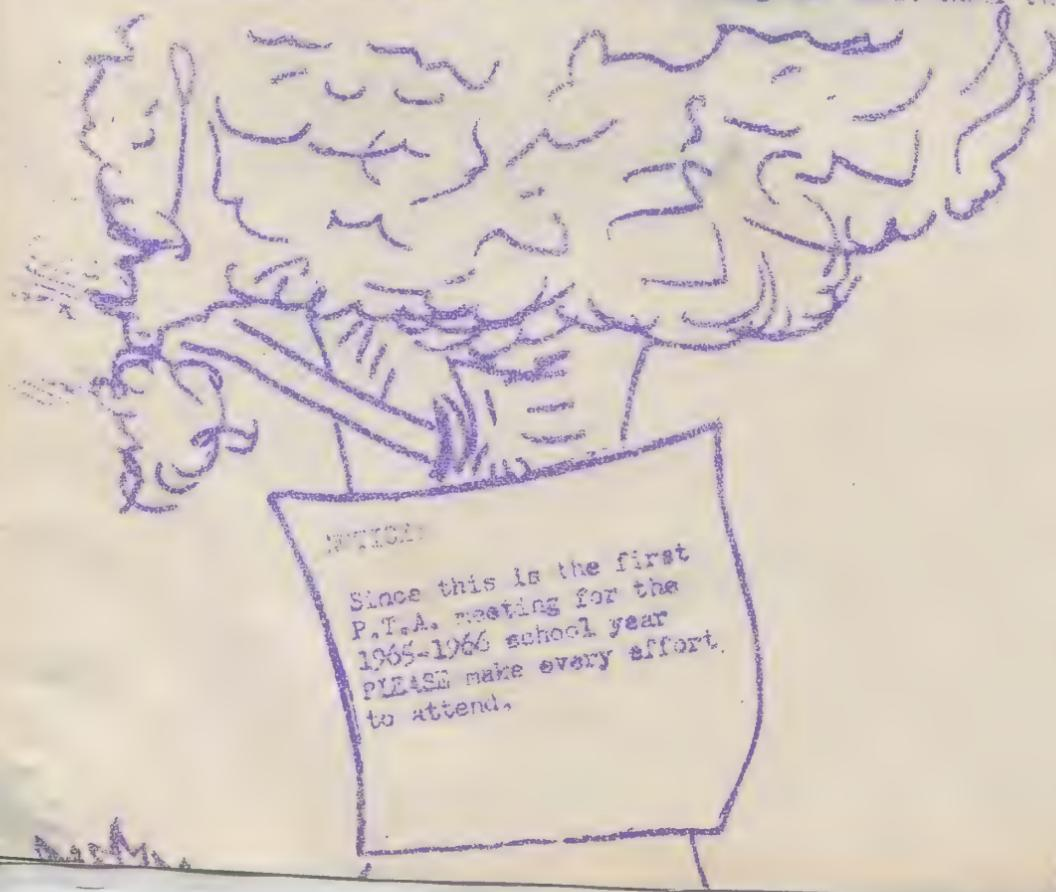 NOTICE
Since this is the first
P.T.A. meeting for the
1965-1966 school year
PLEASE make every effort
to attend.